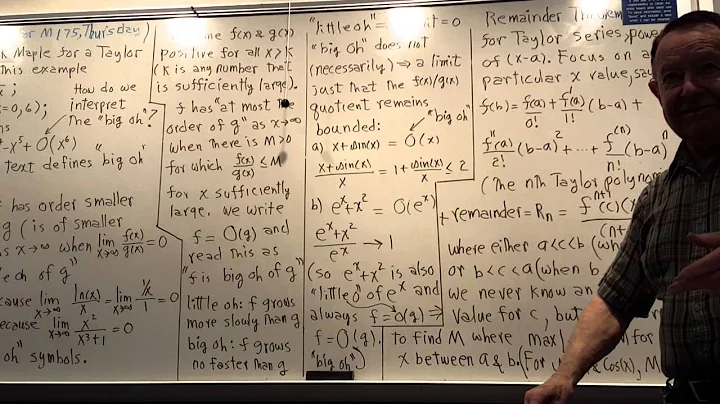 for M175, Thursday)
k Maple for a Taylor
This example
x;
x=0,6);
How do we
interpret
the "big oh"?
-x⁵+O(x⁶)
text defines big oh
has order smaller
g (is of smaller
as x→∞ when lim x→∞ f(x)/g(x) = 0
oh of g"
cause lim x→∞ ln(x)/x = lim x→∞ 1/x/1 = 0
because lim x→∞ x²/x³+1 = 0
oh" symbols.
f(x) & g(x)
positive for all x>K
(K is any number that
is sufficiently large).
f has "at most the
order of g" as x→∞
when there is M>0
for which f(x)/g(x) ≤ M
for x sufficiently
large. we write
f = O(g) and
read this as
"f is big oh of g"
little oh: f grows
more slowly than g
big oh: f grows
no faster than g
"little oh" it = 0
"big oh" does not
(necessarily) ⇒ a limit
just that the f(x)/g(x)
quotient remains
bounded: "big oh"
a) x+sin(x) = O(x)
x+sin(x)/x = 1+sin(x)/x ≤ 2
b) eˣ+x² = O(eˣ)
eˣ+x²/eˣ → 1
(so eˣ+x² is also
"little o" of eˣ and
always f=o(g) ⇒
f=O(g).
"big oh")
Remainder
for Taylor series, powe
of (x-a). Focus on a
particular x value, say
f(b) = f(a)/0! + f'(a)/1! (b-a) +
f''(a)/2! (b-a)² + ⋯ + f⁽ⁿ⁾(a)/n! (b-a)ⁿ
(the nth Taylor polyno
+ remainder = Rn = fⁿ⁺¹(c)(x
(n+
where either a<c<b (wh
or b<c<a (when b
we never know an
value for c, but
to find M where max | for
x between a & b. (For & cos(x), M